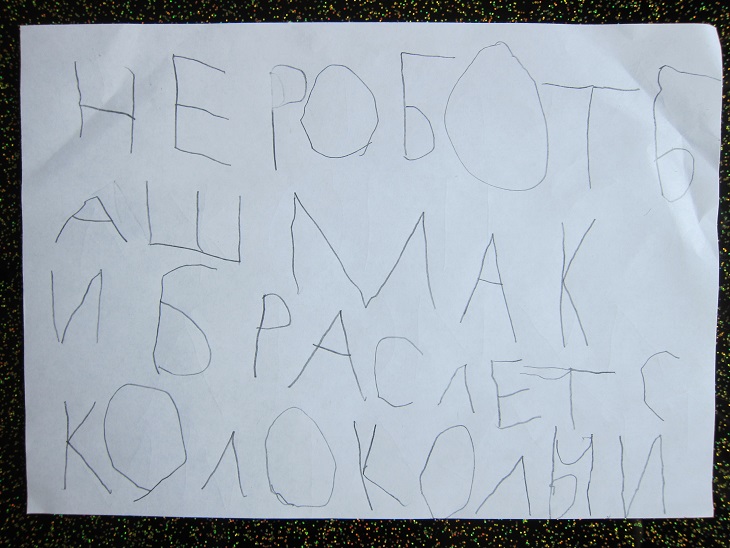 НЕ РОБОТ Б
АШМАК
И БРАСЛЕТ С
КОЛОКОЛЬИ